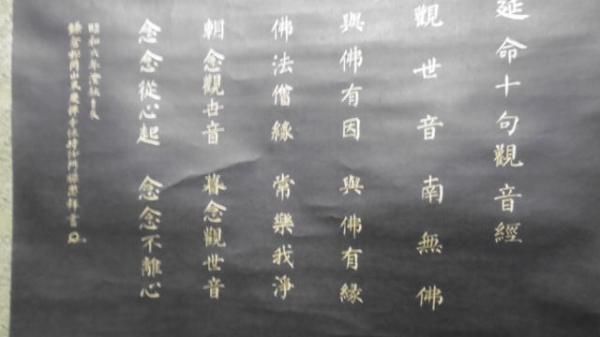 延命十句觀音經
觀世音 南無佛
與佛有因 與佛有緣
佛法僧緣 常樂我淨
朝念觀世音 暮念觀世音
念念從心起 念念不離心
昭和